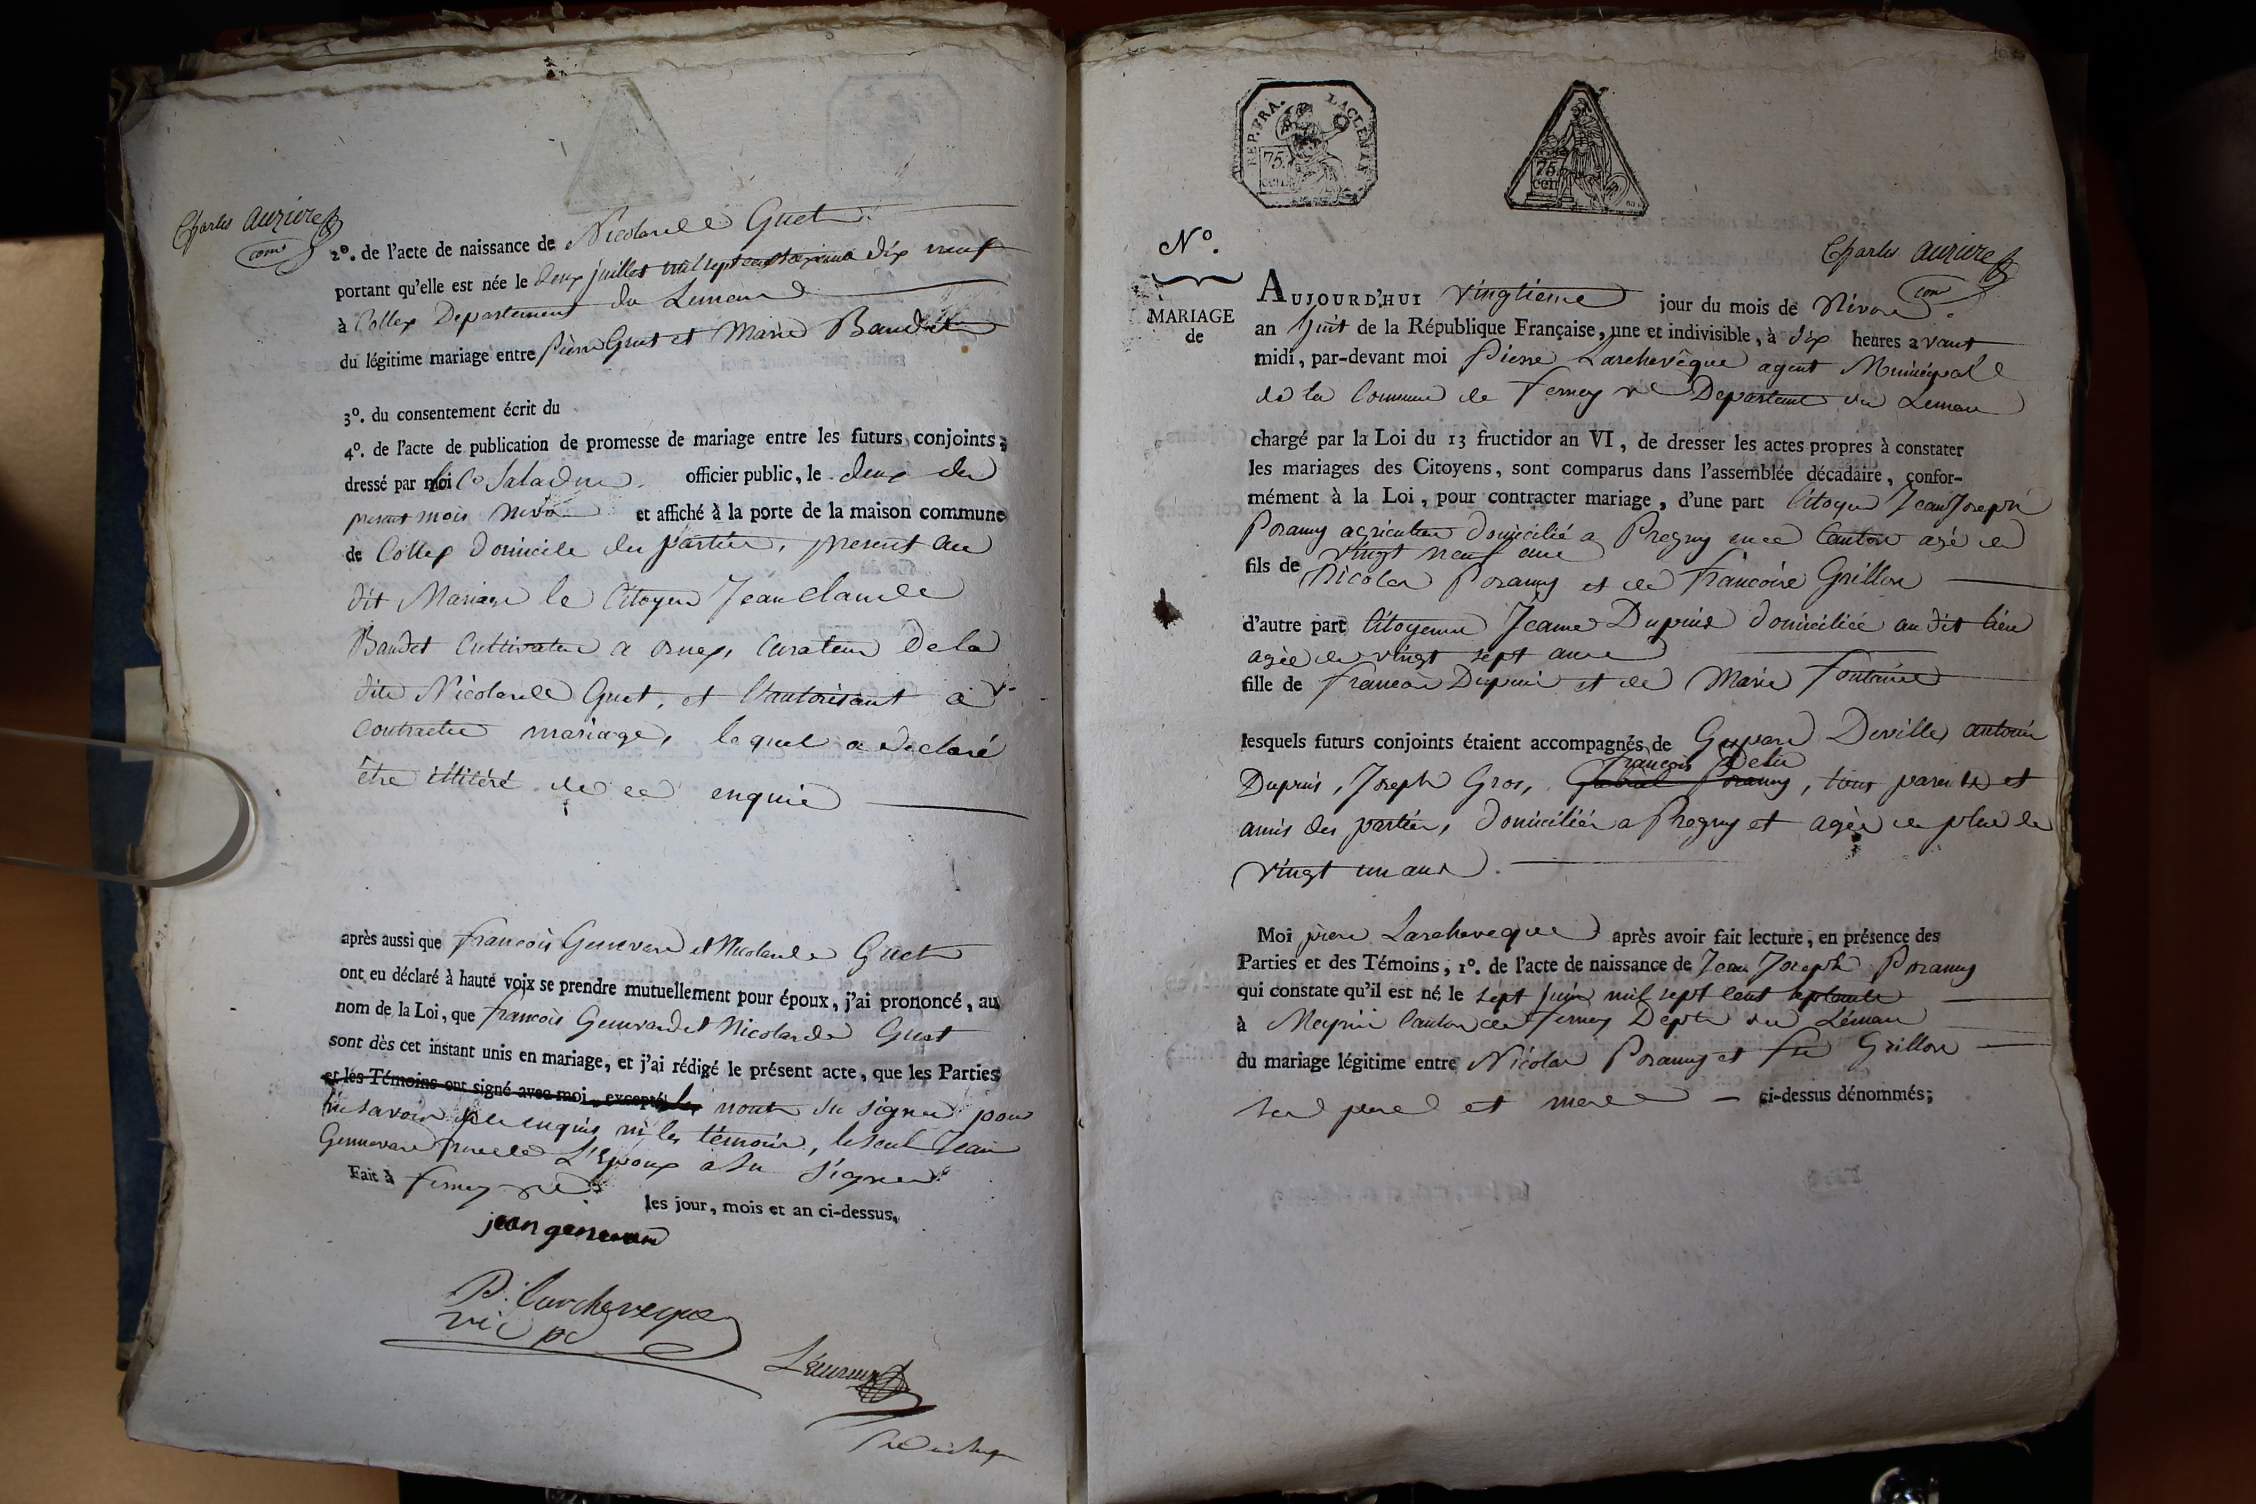 Charles auziere
com
2º. de l'acte de naissance de Nicolarde Guet
portant qu'elle est née le deux juillet mil sept cent soixante dix neuf
à Collex Departement du Leman
du légitime mariage entre pierre Guet et Marie Baudet
3º. du consentement écrit du
4º. de l'acte de publication de promesse de mariage entre les futurs conjoints,
dressé par moi Cº Saladin officier public, le deux du
present mois nivose et affiché à la porte de la maison commune
de Collex domicile des parties, present au
dit Mariage le Citoyen Jean Claude
Baudet Cultivateur a ornex, curateur de la
dite Nicolarde Guet, et l'autorisant a
contracter mariage, lequel a declaré
être illiteré de ce enquis
après aussi que francois Genevard et Nicolarde Guet
ont eu déclaré à haute voix se prendre mutuellement pour époux, j'ai prononcé, au
nom de la Loi, que francois Genevard et Nicolarde Guet
sont dès cet instant unis en mariage, et j'ai rédigé le présent acte, que les Parties
et les Témoins ont signé avec moi, excepté les nont su signer pour
ne savoir de ce enquis ni les témoins, le seul Jean
Gennevard frere de L'Epoux a su signer
Fait à ferney
les jour, mois et an ci-dessus.
jean genevard
P. Larcheveque
REP. FRA.
75.
cen.
75.
cen
Nº.
MARIAGE
de
Charles auziere
com
AUJOURD'HUI vingtieme jour du mois de Nivose
an huit de la République Française, une et indivisible, à dix heures avant
midi, par-devant moi Pierre Larchevêque agent Municipal
de la Commune de ferney Departemt du Leman
chargé par la Loi du 13 fructidor an VI, de dresser les actes propres à constater
les mariages des Citoyens, sont comparus dans l'assemblée décadaire, confor-
mément à la Loi, pour contracter mariage, d'une part Citoyen Jean Joseph
Poramy agriculteur domicilié a Pregny en ce Canton agé de
vingt neuf ans
fils de Nicolas Poramy et de francoise Grillon
d'autre part Citoyenne Jeanne Dupuis domiciliée au dit lieu
agée de vingt sept ans
fille de francois Dupuis et de Marie fontaine
lesquels futurs conjoints étaient accompagnés de Gaspard Deville, antoine
francois
Dupuis, Joseph Gros, Gabriel Poramy, tous parents et
amis des parties, domiciliés a Pregny et agés de plus de
vingt un ans.
Moi piere Larcheveque après avoir fait lecture, en présence des
Parties et des Témoins, 1º. de l'acte de naissance de Jean Joseph Poramy
qui constate qu'il est né le sept juin mil sept cent septante
à Meyrin Canton de ferney Depte du Léman
du mariage légitime entre Nicolas Poramy et fse Grillon
ses pere et mere — ci-dessus dénommés;